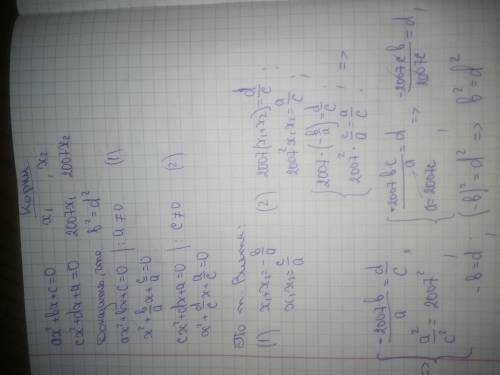 Корни
ax²+bx+c=0   x₁, x₂
cx²+dx+a=0   2007x₁   2007x₂
b²=d²
ax²+bx+c=0 | :a≠0   (1)
x²+b/a x+c/a=0
cx²+dx+a=0 | :c≠0   (2)
x²+d/c x+a/c=0
По т. Виета:
(1) x₁+x₂=-b/a   (2) 2007(x₁+x₂)=d/c,
x₁x₂=c/a   2007²x₁x₂=a/c,
{2007·(-b/a)=d/c,
2007²·c/a=a/c. =>
=> {-2007b/a=d/c,   {-2007bc/a=d   -2007cb/2007c=d,
a²/c²=2007²,   a=2007c, =>
-b=d, (-b)²=d² => b²=d²